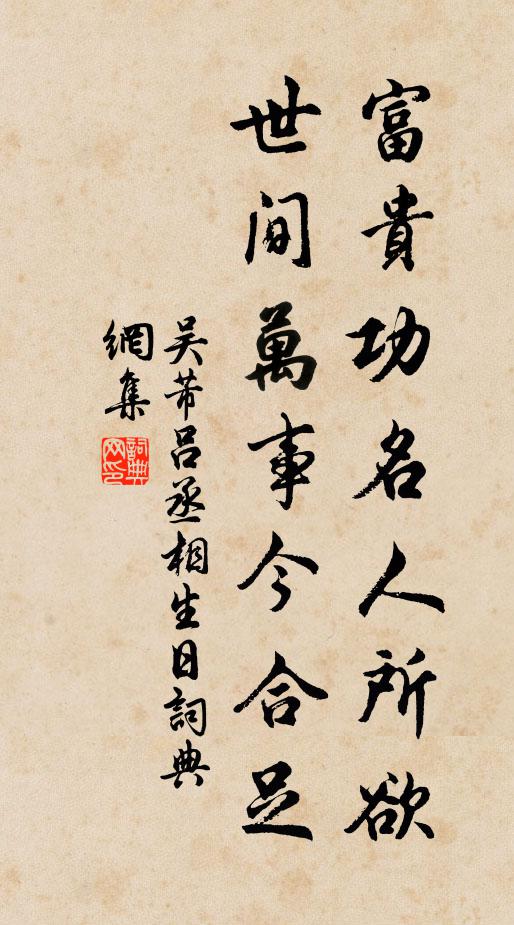 富貴功名人所欲
世间萬事今合足
吴芾吕丞相生日詞典
網集
詞典
网印